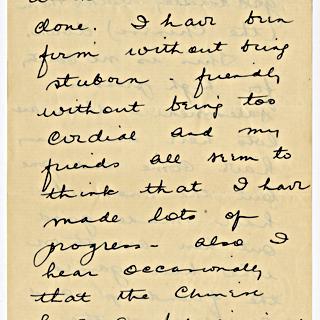 done. I have been
firm without being
stuborn - friendly
without being too
cordial and my
friends all seem to
think that I have
made lots of
progress - also I
hear occasionally
that the Chinese